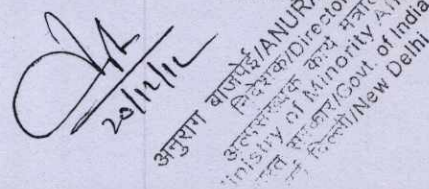 20/12/12
अनुराग बाजपेई/ANURA
निदेशक/Director
अल्पसंख्यक कार्य मंत्रा
Ministry of Minority Af
सरकार/Govt. of India
दिल्ली/New Delhi